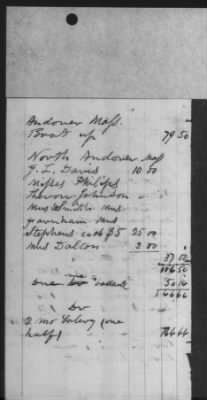 Andover Mass.
Brot up 79 50
North Andover Mass
G. L. Davis 10 00
Misses Philips
Theron Johnson
Mrs Smith Mrs
Farnham Mrs
Stephens each $5 25 00
Mrs Dalton 2 00
37 00
116 50
Due me
50 16
166 66
Dr
2 mo Salary (one
half)